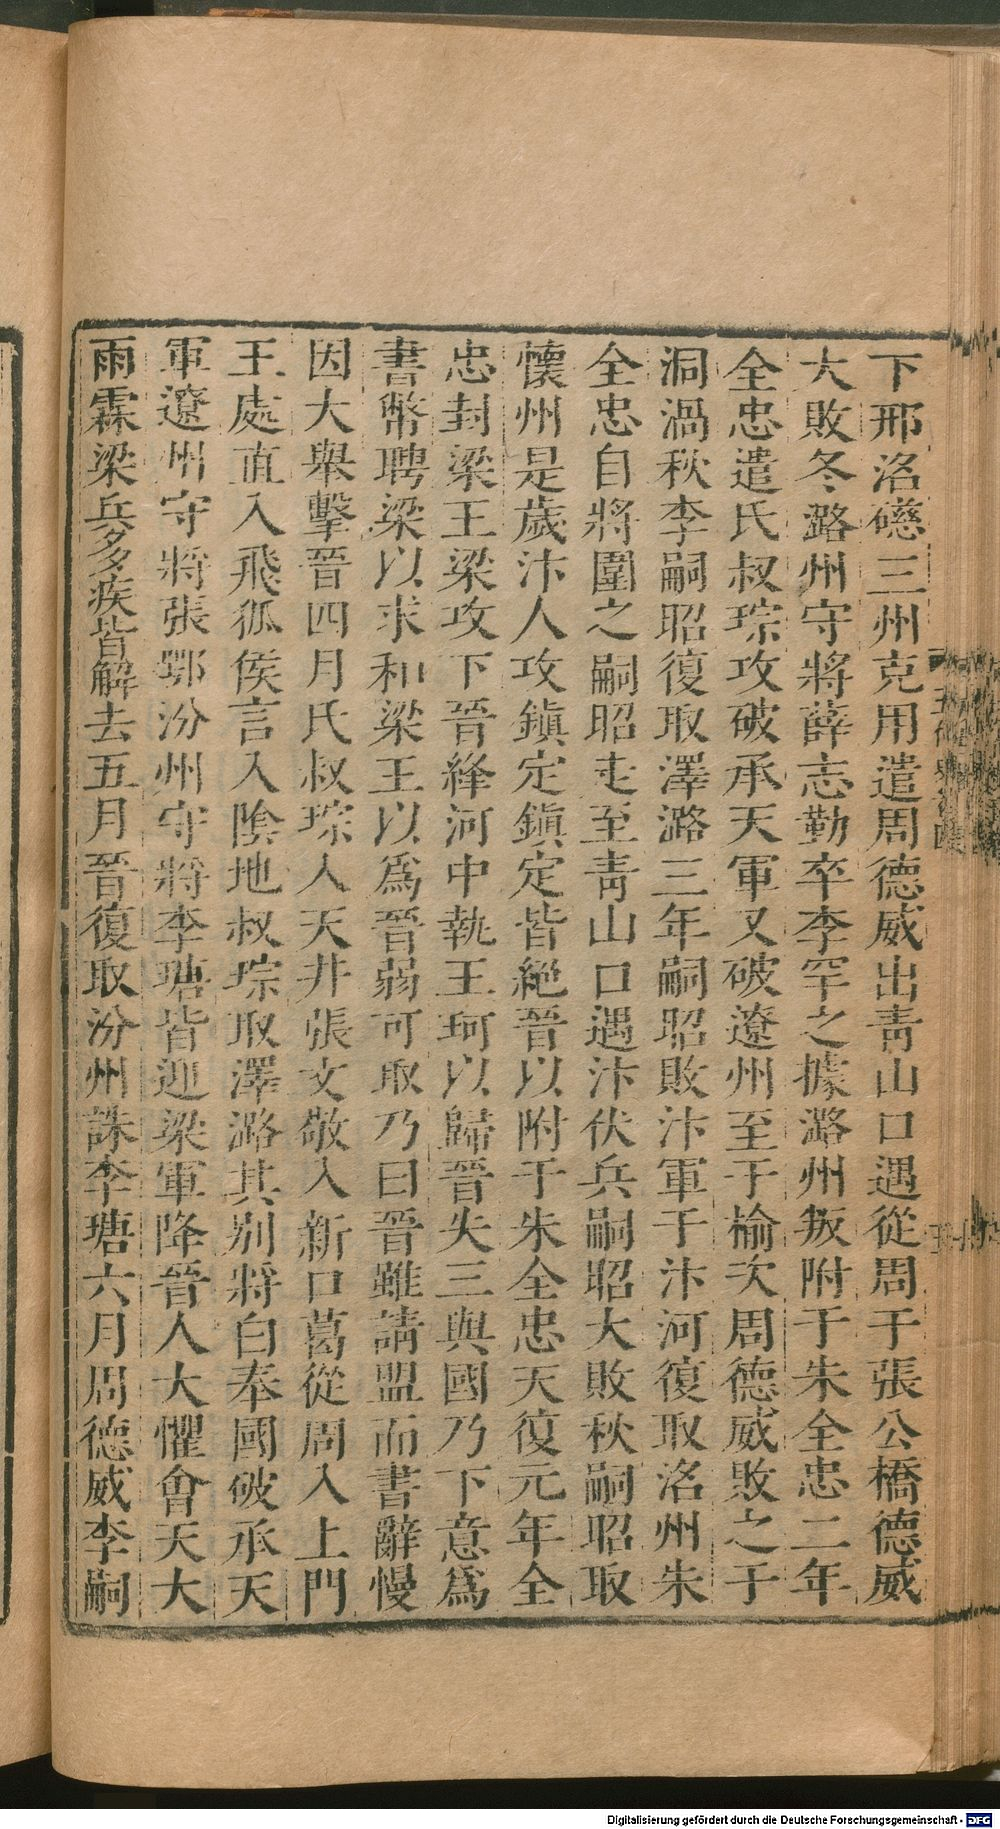 下邢洺磁三州克用遣周德威出青山口遇從周于張公橋德威
大敗冬潞州守將薛志勤卒李罕之據潞州叛附于朱全忠二年
全忠遣氏叔琮攻破承天軍又破遼州至于榆次周德威敗之于
洞渦秋李嗣昭復取澤潞三年嗣昭敗汴軍于汴河復取洺州朱
全忠自將圍之嗣昭走至青山口遇汴伏兵嗣昭大敗秋嗣昭取
懷州是歲汴人攻鎮定鎮定皆絕晉以附于朱全忠天復元年全
忠封梁王梁攻下晉絳河中執王珂以歸晉失三與國乃下意爲
書幣聘梁以求和梁王以爲晉弱可取乃曰晉雖請盟而書辭慢
因大舉擊晉四月氏叔琮入天井張文敬入新口葛從周入上門
王處直入飛狐侯言入陰地叔琮取澤潞其別將白奉國破承天
軍遼州守將張鄂汾州守將李瑭皆迎梁軍降晉人大懼會天大
雨霖梁兵多疾皆解去五月晉復取汾州誅李瑭六月周德威李嗣
Digitalisierung gefördert durch die Deutsche Forschungsgemeinschaft - DFG